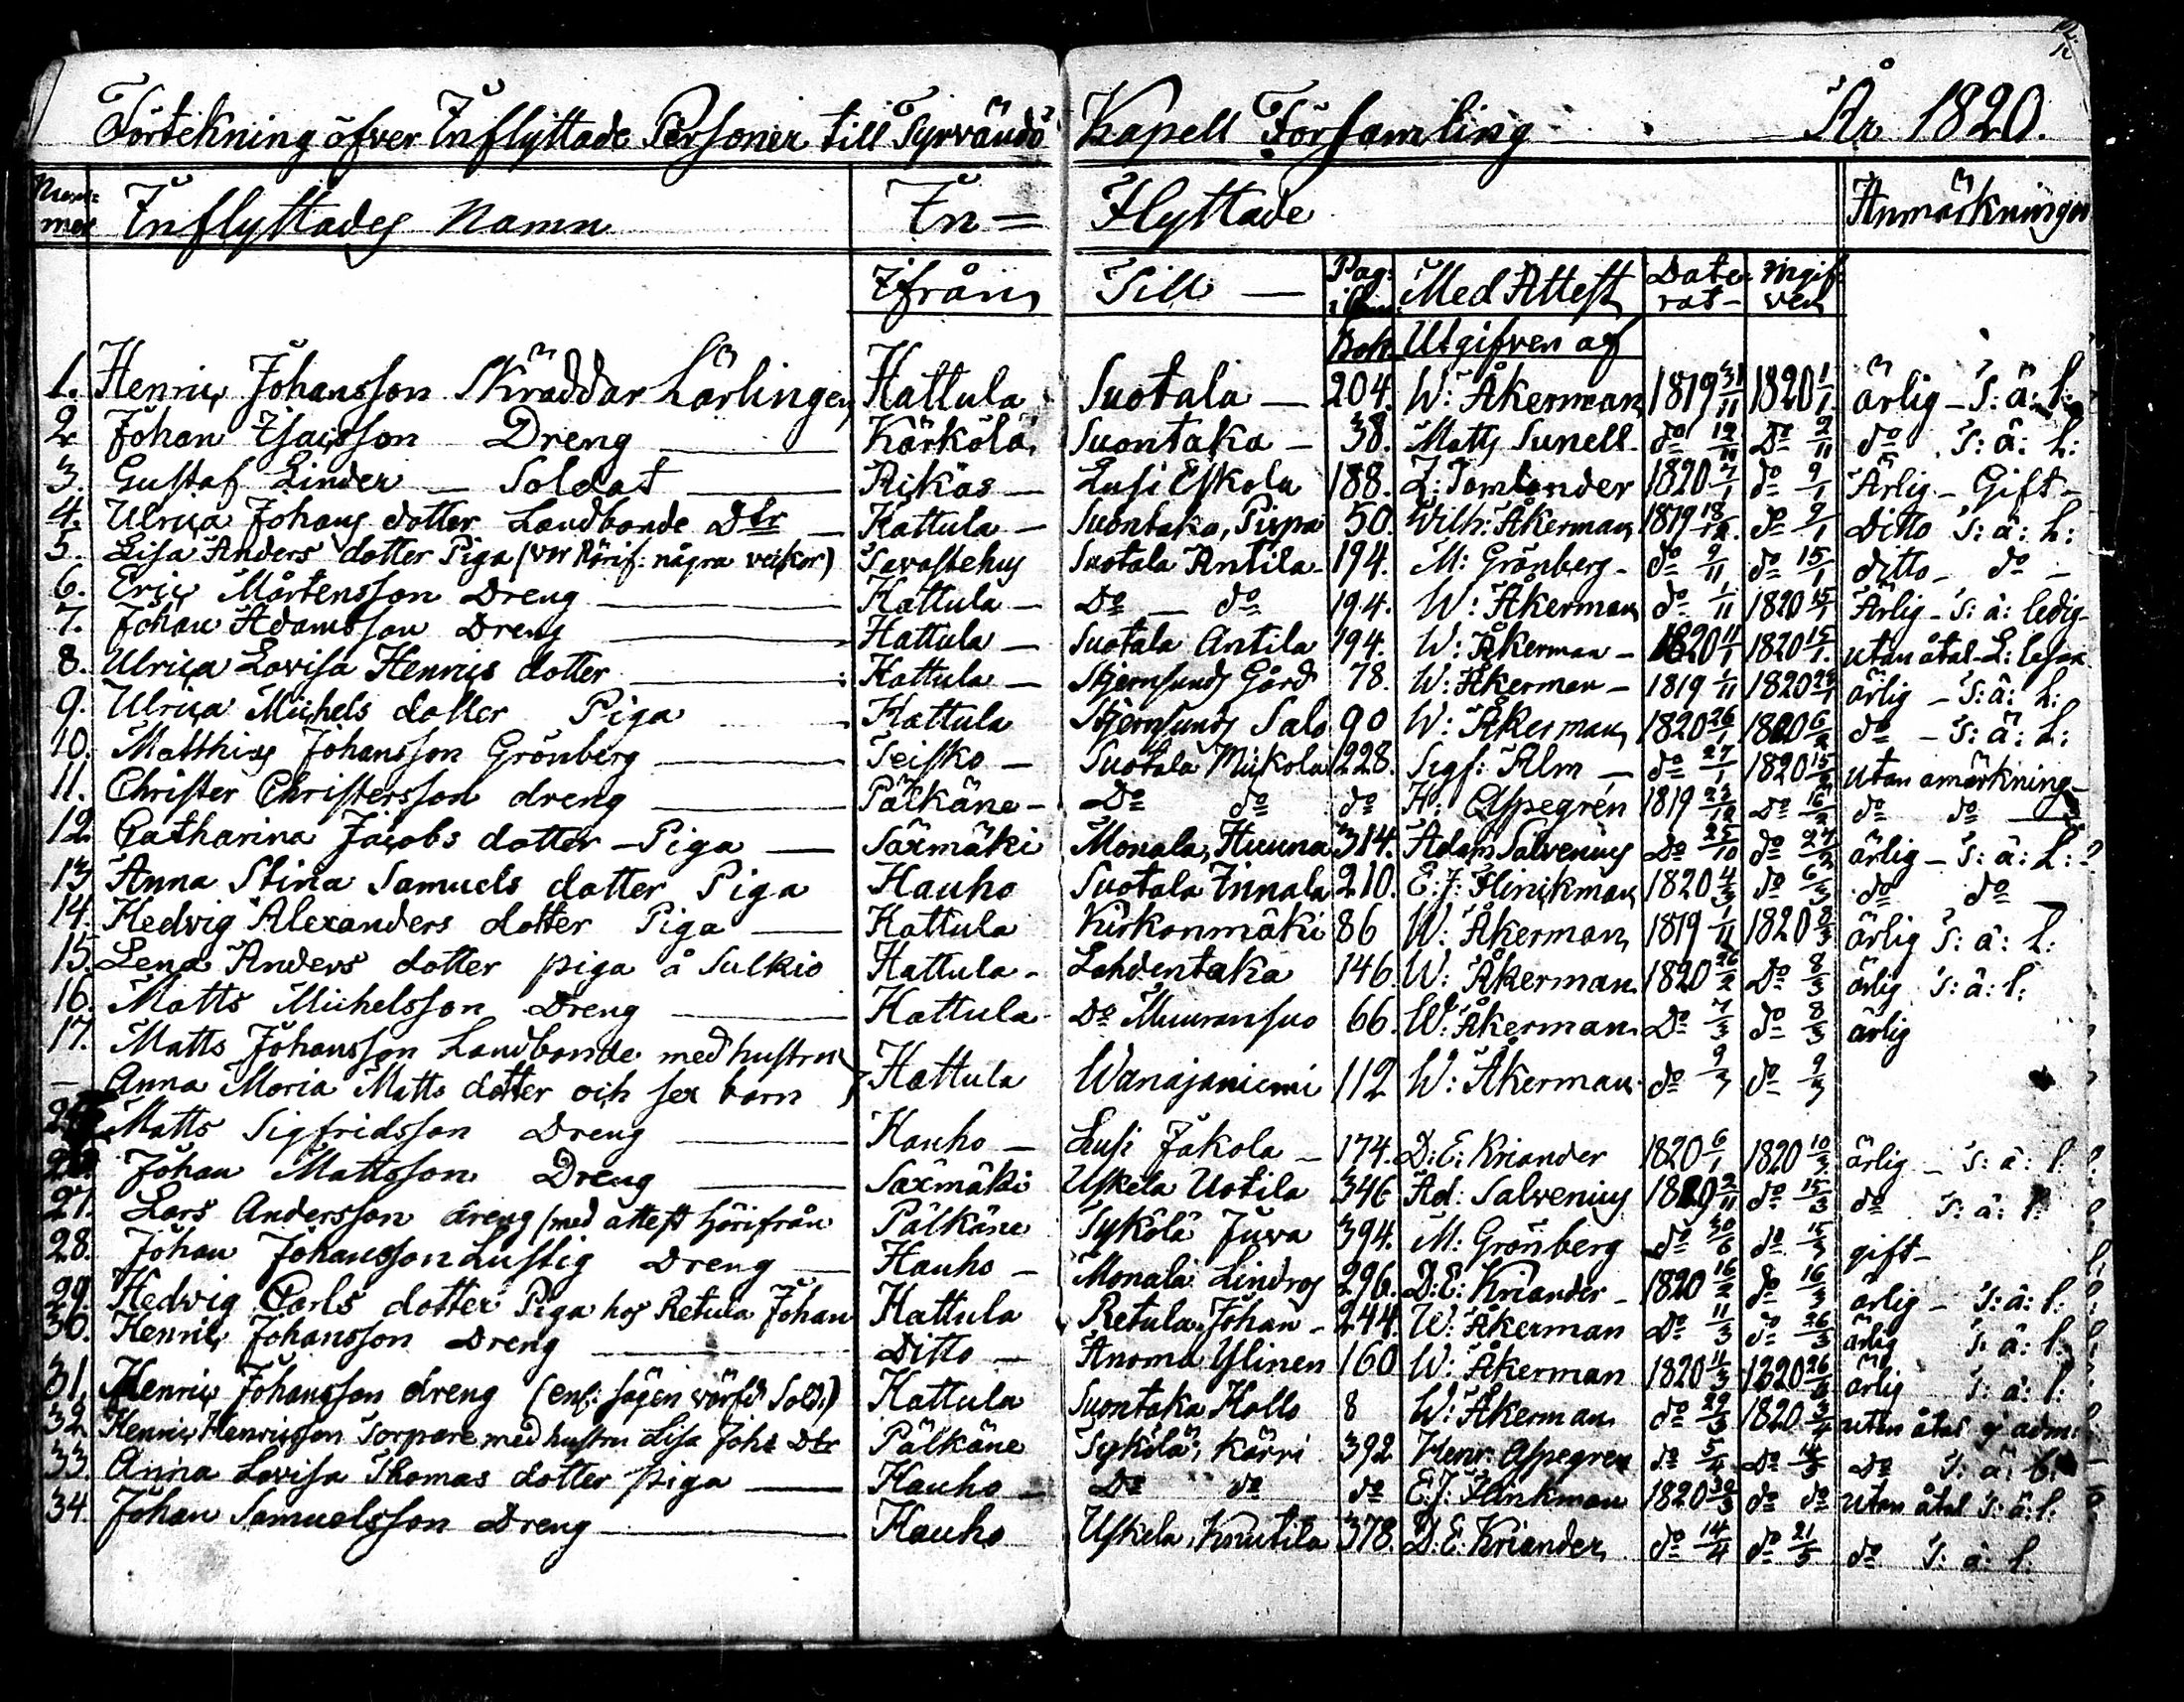 Förtekning öfver Inflyttade Personer till Tyrvändö Kapell Församling År 1820.
Num- Inflyttades Namn In= Flyttade Anmärkningar
mer
Ifrån Till — Pag: Med Attest Date- Ingif-
rat ven
Bok Utgifven af
1. Henric Johansson Skräddar Lärlingen Hattula Suotala — 204. W: Åkerman 1819 31/11 1820 1/1 ärlig — S: ä: l:
2. Johan Isacsson Dreng Kärkölä Suontaka — 38. Matts Sunell do 12/11 Do 2/11 do S: ä: L:
3. Gustaf Linder — Soldat Rikas — Lusi Eskola 188. Z: Tomlander 1820 7/1 do 9/1 Ärlig — Gift —
4. Ulrica Johans dotter Landbonde Dtr Hattula — Suontaka, Pispa 50. Wilh: Åkerman 1819 18/12 do 9/1 Ditto S: ä: L:
5. Lisa Anders dotter Piga (var härif: några veckor) Tavastehus Suotala Antila — 194. M: Grönberg — do 9/11 do 15/1 ditto — do —
6. Eric Mårtensson Dreng Hattula — Do — do 194. W: Åkerman do 1/11 1820 15/1 Ärlig — S: ä: ledig —
7. Johan Adamsson Dreng Hattula — Suotala Antila 194. W: Åkerman — 1820 11/1 1820 15/1 utan åtal — L: läsar
8. Ulrica Lovisa Henrics dotter Hattula — Stjernsunds Gård 78. W: Åkerman — 1819 1/11 1820 23/1 ärlig — S: ä: L:
9. Ulrica Michels dotter Piga Hattula Stjernsunds Salo 90 W: Åkerman 1820 26/1 1820 6/2 do — S: ä: L:
10. Matthias Johansson Grönberg Teisko — Suotala Mickola 228. Sigf: Alm — do 27/1 1820 15/2 utan amärkning —
11. Christer Christersson dreng Pälkäne — Do do do H: Aspegrén 1819 23/12 Do 16/2 do do —
12. Catharina Jacobs dotter — Piga — Säxmäki Monala, Huuna 314. Adam Salvenius Do 25/10 do 27/2 ärlig — S: ä: L:
13. Anna Stina Samuels dotter Piga Hauho Suotala Innala 210. E: J: Flinckman 1820 4/3 do 6/3 do do —
14. Hedvig Alexanders dotter Piga — Hattula Kirkonmäki 86 W: Åkerman 1819 1/11 1820 8/3 ärlig S: ä: L:
15. Lena Anders dotter piga å Sulkio Hattula — Lahdentaka 146 W: Åkerman 1820 26/2 Do 8/3 ärlig S: ä: l:
16. Matts Michelsson Dreng Hattula Do Muuransuo 66. W: Åkerman Do 7/3 do 8/3 ärlig
17. Matts Johansson Landbonde med hustru
— Anna Maria Matts dotter och sex barn } Hattula Wanajaniemi 112 W: Åkerman do 9/3 do 9/3
Matts Sigfridsson Dreng Hauho — Lusi Jakola — 174. D: E: Kriander 1820 6/1 1820 10/3 ärlig — S: ä: l:
Johan Mattsson Dreng Säxmäki Uskela Uotila 346 Ad: Salvenius 1819 2/11 do 15/3 do S: ä: l:
27. Lars Andersson dreng (med attest härifrån Pälkäne Sykölä Juva 394. M: Grönberg do 30/6 do 15/3 gift —
28. Johan Johansson Lustig Dreng — Hauho — Monala Lindros 296. D: E: Kriander — 1820 16/2 do 16/3 ärlig — S: ä: l:
29. Hedvig Carls dotter Piga hos Retula Johan Hattula Retula, Johan — 244. W: Åkerman Do 11/3 do 26/3 ärlig S: ä: l:
30. Henric Johansson Dreng Ditto — Anoma Ylinen 160 W: Åkerman 1820 11/3 1820 26/3 ärlig S: ä: l:
31. Henric Johansson dreng (enl: sägen värfd Sold:) Hattula Suontaka Hollo 8 W: Åkerman do 29/3 1820 3/4 utan åtal ej adm:
32. Henric Henricsson Torpare med hustru Lisa Johs Dtr Pälkäne Sykölä; Kärri 392 Henr: Aspegren do 5/4 Do 14/5 Do S: ä: l:
33. Anna Lovisa Thomas dotter piga — Hauho — Do do do E: J: Flinkman 1820 30/3 do do utan åtal S: ä: l:
34. Johan Samuelsson Dreng Hauho Uskela, Knutila 378. D: E: Kriander do 14/4 do 21/5 do S: ä: l: